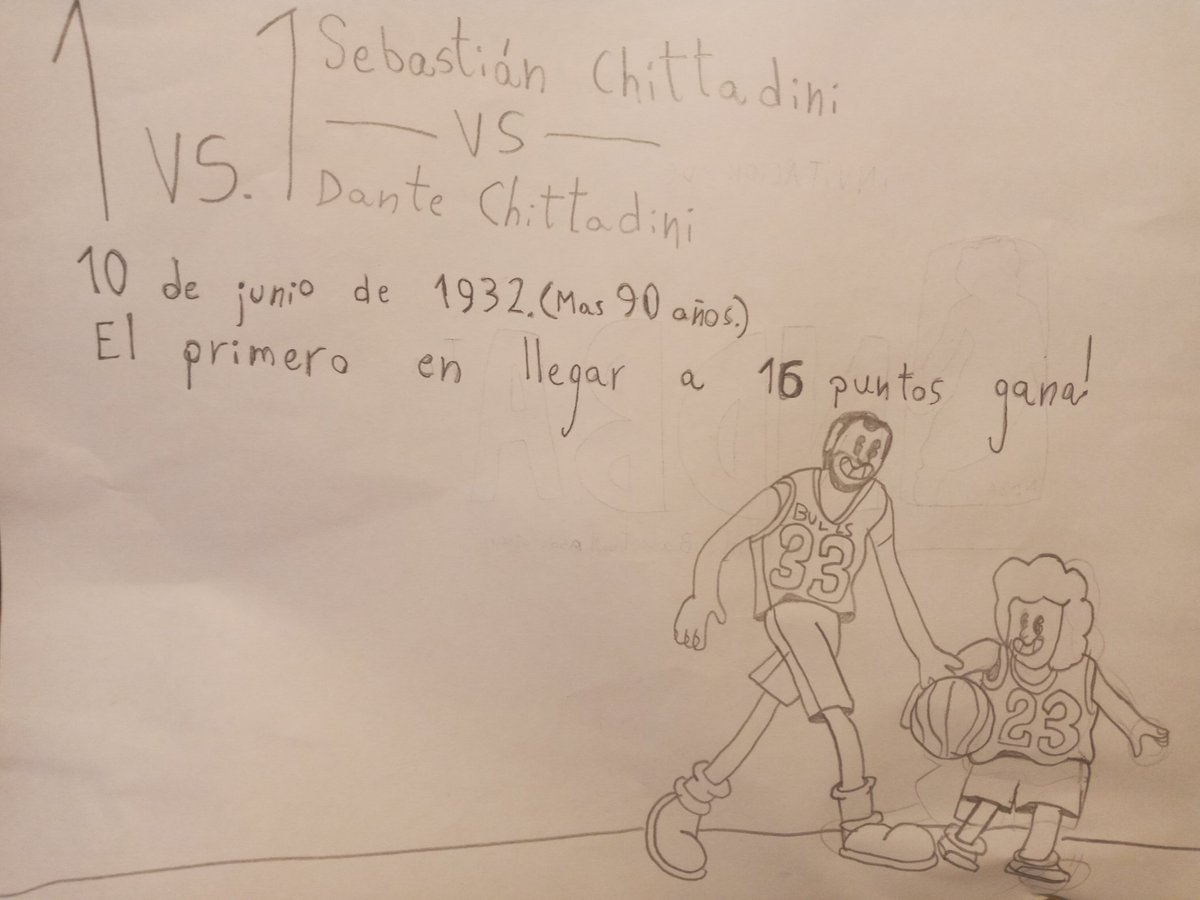 1 VS. 1
Sebastián Chittadini
VS
Dante Chittadini
10 de junio de 1932.(Mas 90 años.)
El primero en llegar a 16 puntos gana!
BULLS
33
23